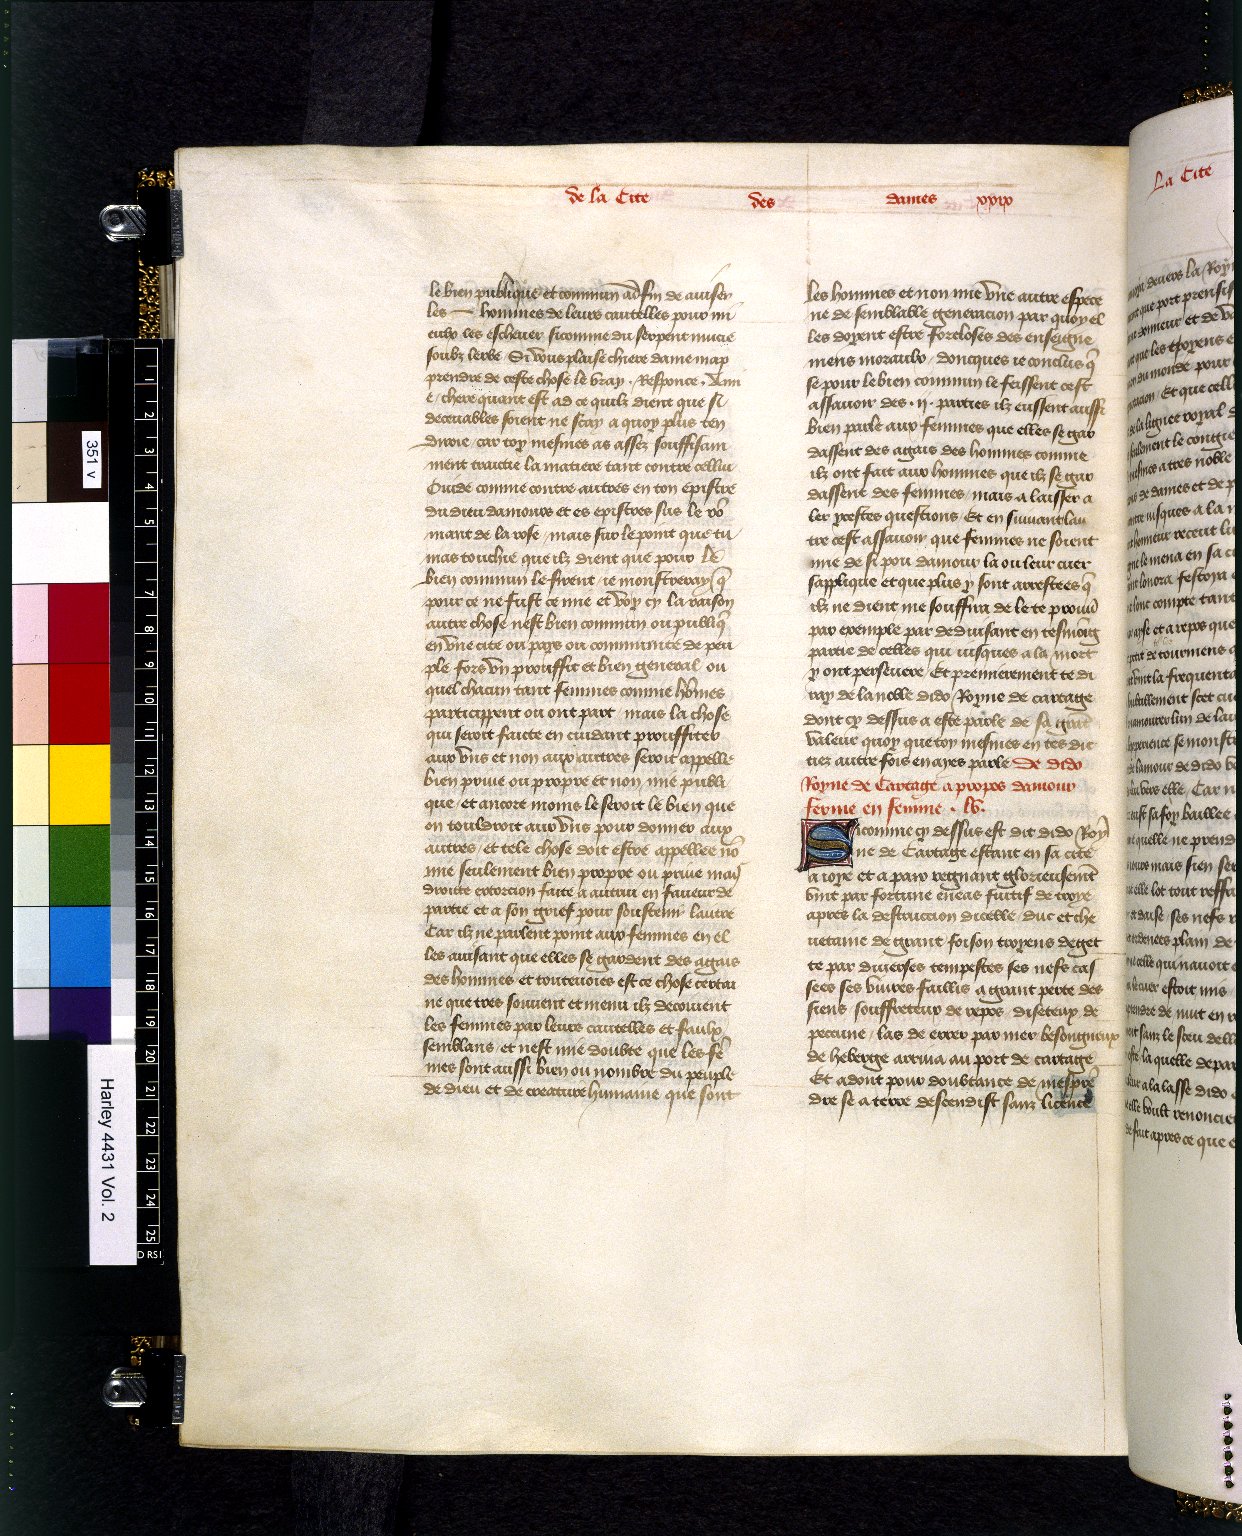 de la Cite des dames xxix
le bien publique et commun ad fin de aviser
les hommes de leurs cautelles pour mi
eulx les eschever sicomme du serpent mucie
soubz lerbe Si vous plaise chiere dame map
prendre de ceste chose le vray . Response . Ami
e chere quant est ad ce quilz dient que si
decevables soient ne scay a quoy plus ten
diroie car toy mesmes as assez souffisam
ment traictie la matiere tant contre cellui
Ovide comme contre autres en ton epistre
du dieu damours et es epistres sus le ro
mant de la rose mais sur le point que tu
mas touchie que ilz dient que pour le
bien commun le firent ie monstreray q̃
pour ce ne fust ce mie et voy cy la raison
autre chose nest bien commun ou publiq̃
en vne cite ou pays ou communite de peu
ple fors vn prouffit et bien general ou
quel chacun tant femmes comme hõmes
particippent ou ont part mais la chose
qui seroit faicte en cuidant prouffiter
aux vns et non aux autres seroit appelle
bien prive ou propre et non mie publi
que et ancore moins le seroit le bien que
on touldroit aux vns pour donner aux
autres et tele chose doit estre appellee nõ
mie seulement bien propre ou prive mais
droitte extorcion faite a autrui en faveur de
partie et a son grief pour soustenir lautre
Car ilz ne parlent point aux femmes en el
les avisant que elles se gardent des agais
des hommes et toutevoies est ce chose certai
ne que tres souvent et menu ilz decoivent
les femmes par leurs cautelles et faulx
semblans et nest mie doubte que les fẽ
mes sont aussi bien ou nombre du peuple
de dieu et de creature humaine que sont
les hommes et non mie vne autre espece
ne de semblable generacion par quoy el
les doyent estre forcloses des enseigne
mens moraulx doncques ie conclus q̃
se pour le bien commun le feissent cest
assavoir des .ii. parties ilz eussent aussi
bien parle aux femmes que elles se gar
dassent des agais des hommes comme
ilz ont fait aux hommes que ilz se gar
dassent des femmes mais a laisser a
ler yestes questions Et en suivant lau
tre cest assavoir que femmes ne soient
mie de si pou damour la ou leur cuer
sapplique et que plus y sont arrestees q̃
ilz ne dient me souffira de le te prouv̄
par exemple par deduisant en tesmoīg
partie de celles qui iusques a la mort
y ont persevere Et premierement te di
ray de la noble dido Royne de cartage
dont cy dessus a este parle de sa grãt
valeur quoy que toy mesmes en tes dic
tiez autre fois en ayes parle De dido
Royne de Cartage a propos damour
ferme en femme . lv.
Sicomme cy dessus est dit dido Roy
ne de Cartage estant en sa cite
a ioye et a paix regnant glorieusemẽt
vint par fortune eneas fuitif de troye
apres la destruccion dicelle duc et che
vetaine de grant foison troyens deget
te par diverses tempestes ses nefs cas
sees ses vivres faillis a grant perte des
siens souffreteux de repos diseteux de
peccune las de errer par mer besongneux
de heberge arriva au port de cartage
Et adont pour doubtance de mespre
dre se a terre descendist sanz licence
La Cite
351 v
Harley 4431 Vol. 2
1 2 3 4 5 7 8 9 10 11 12 13 14 15 16 17 18 19 20 21 22 23 24 25